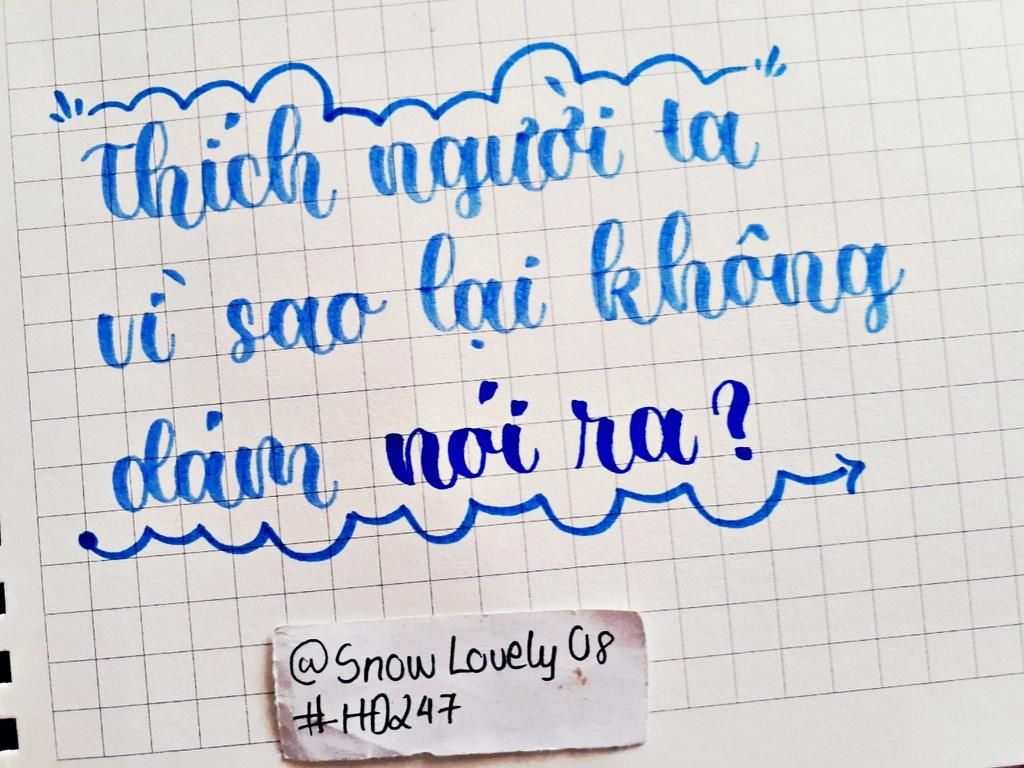 Thích người ta
vì sao lại không
dám nói ra?
@Snow Lovely 08
#HD247